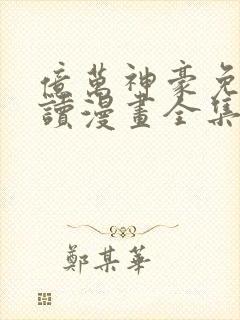 億萬神豪免
讀漫畫全集
鄭某華